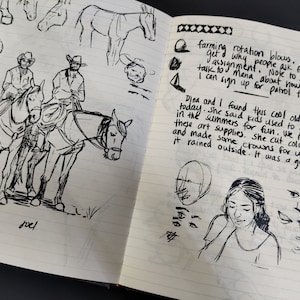 Joel
farming rotation blows.
get why people ask
assignment. Note to
talk to Mena about how
I can sign up for patrol
Dina and I found this cool old
today. She said kids used to
in the summers for fun. We
these art supplies. She cut colo
and made some crowns for
it rained outside. It was a g